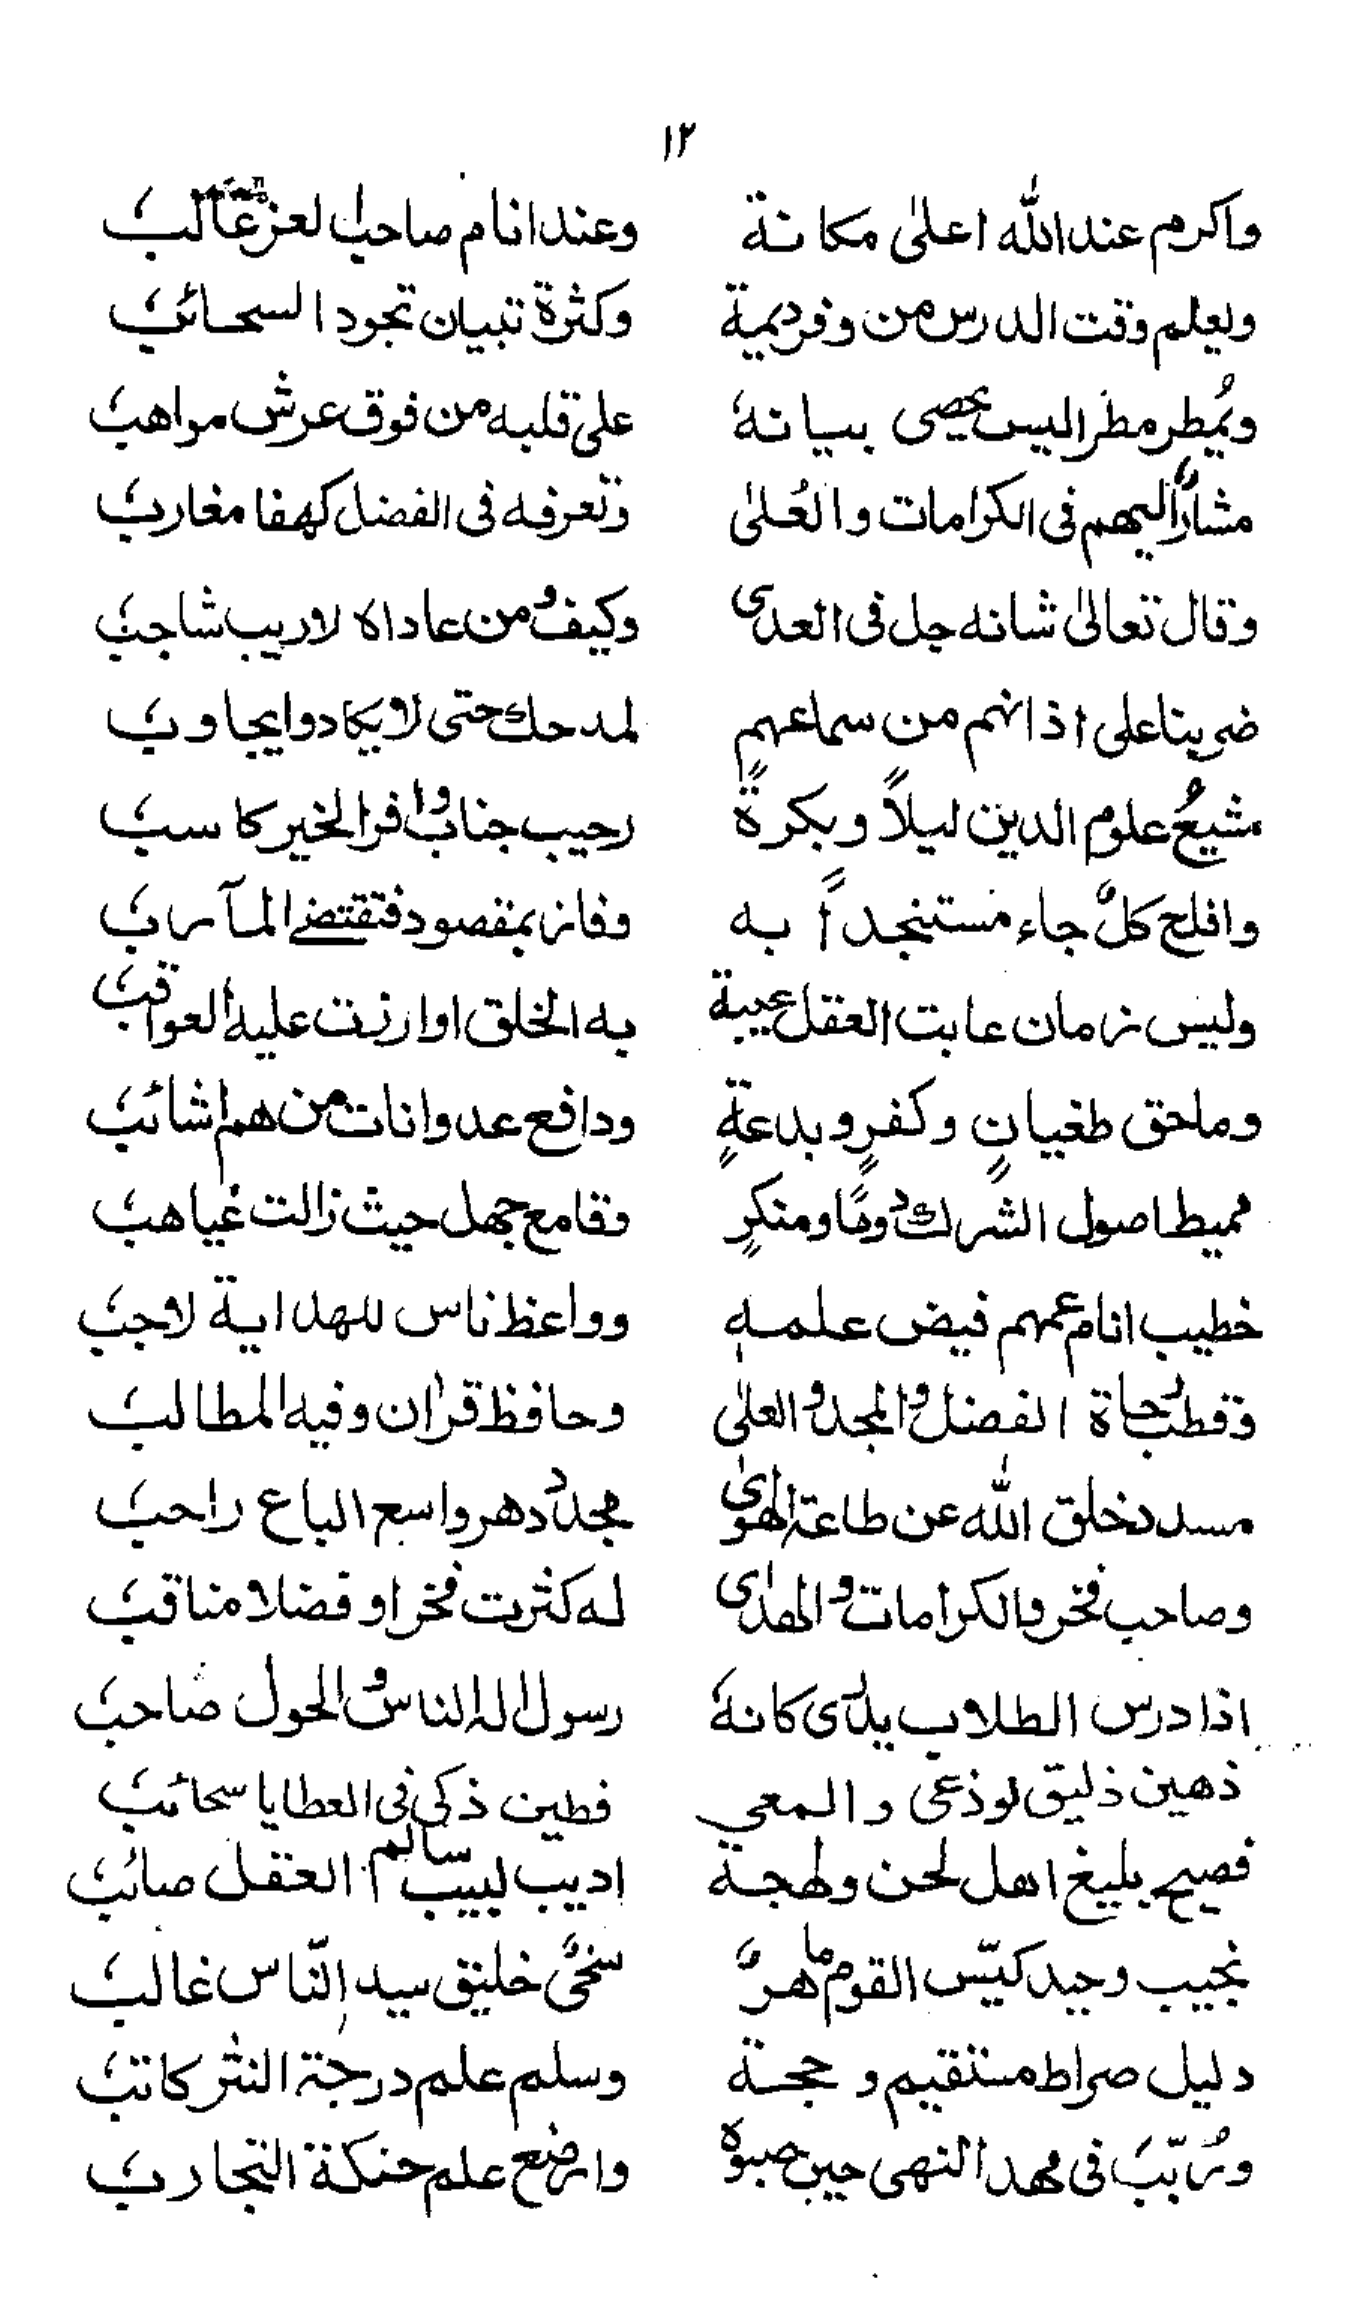 ١٢
واكرم عند الله اعلىٰ مكانة وعند انام صاحب لعز غالب
وليعلم وقت الدرس من وفر ديمية وكثرة تبيان تجود السحائب
ويُمطر مطر اليس يحصى بيانهٗ على قلبه من فوق عرش مواهب
مشارٌ اليهم فى الكرامات والعُلىٰ وتعرفه فى الفضل كهفا مغارب
وقال تعالىٰ شانه جل فى العدى وكيف ومن عاداه لاريب شاجب
ضربنا على اذانهم من سماعهم لمدحك حتى لايكادوا يجاوب
مشيعُ علوم الدين ليلاً وبكرةً رحيب جناب وافر الخير كاسب
وافلح كلٌ جاء مستنجداً به وفاز بمقصود فتقتضے المآرب
وليس زمان عابت العقل عيبة به الخلق اوارزت عليه العواقب
وماحق طغيانٍ وكفرٍ وبدعةٍ ودافع عدوانات من هم اشائب
مميط اصول الشرك دومًا ومنكرٍ وقامع جهل حيث زالت غياهب
خطيب انام عمهم فيض علمه وواعظ ناس للهداية لاجب
وقطب رحاة الفضل والمجد والعلىٰ وحافظ قران وفيه المطالب
مسدد خلق الله عن طاعة الهوىٰ مجدد دهر واسع الباع راحب
وصاحب فخر والكرامات والهدىٰ له كثرت فخرا وفضلا مناقب
اذا درس الطلاب يلدى كانهٗ رسول اله الناس والحول صاحب
ذهين ذليق لوذعى والمعي فطين ذكى فى العطايا سحائب
فصيح بليغ اهل لحن ولهجة اديب لبيب سالم العقل صائب
نجيب وحيد كيّس القوم ماهرٌ سخىٌ خليق سيد النّاس غالب
دليل صراط مستقيم وحجة وسلم علم درجة النثر كاتب
ورُبّبَ فى مهد النهى حين صبوه وارضع علم حنكة التجارب